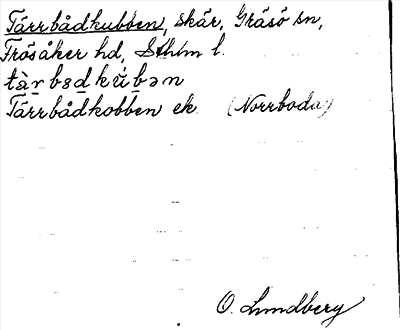 Tärrbådkubben, skär, Gräsö sn,
Frösåker hd, Sthlm l.
tàr bədkúbən
Tärrbådkobben ek. (Norrboda)
O. Lundberg